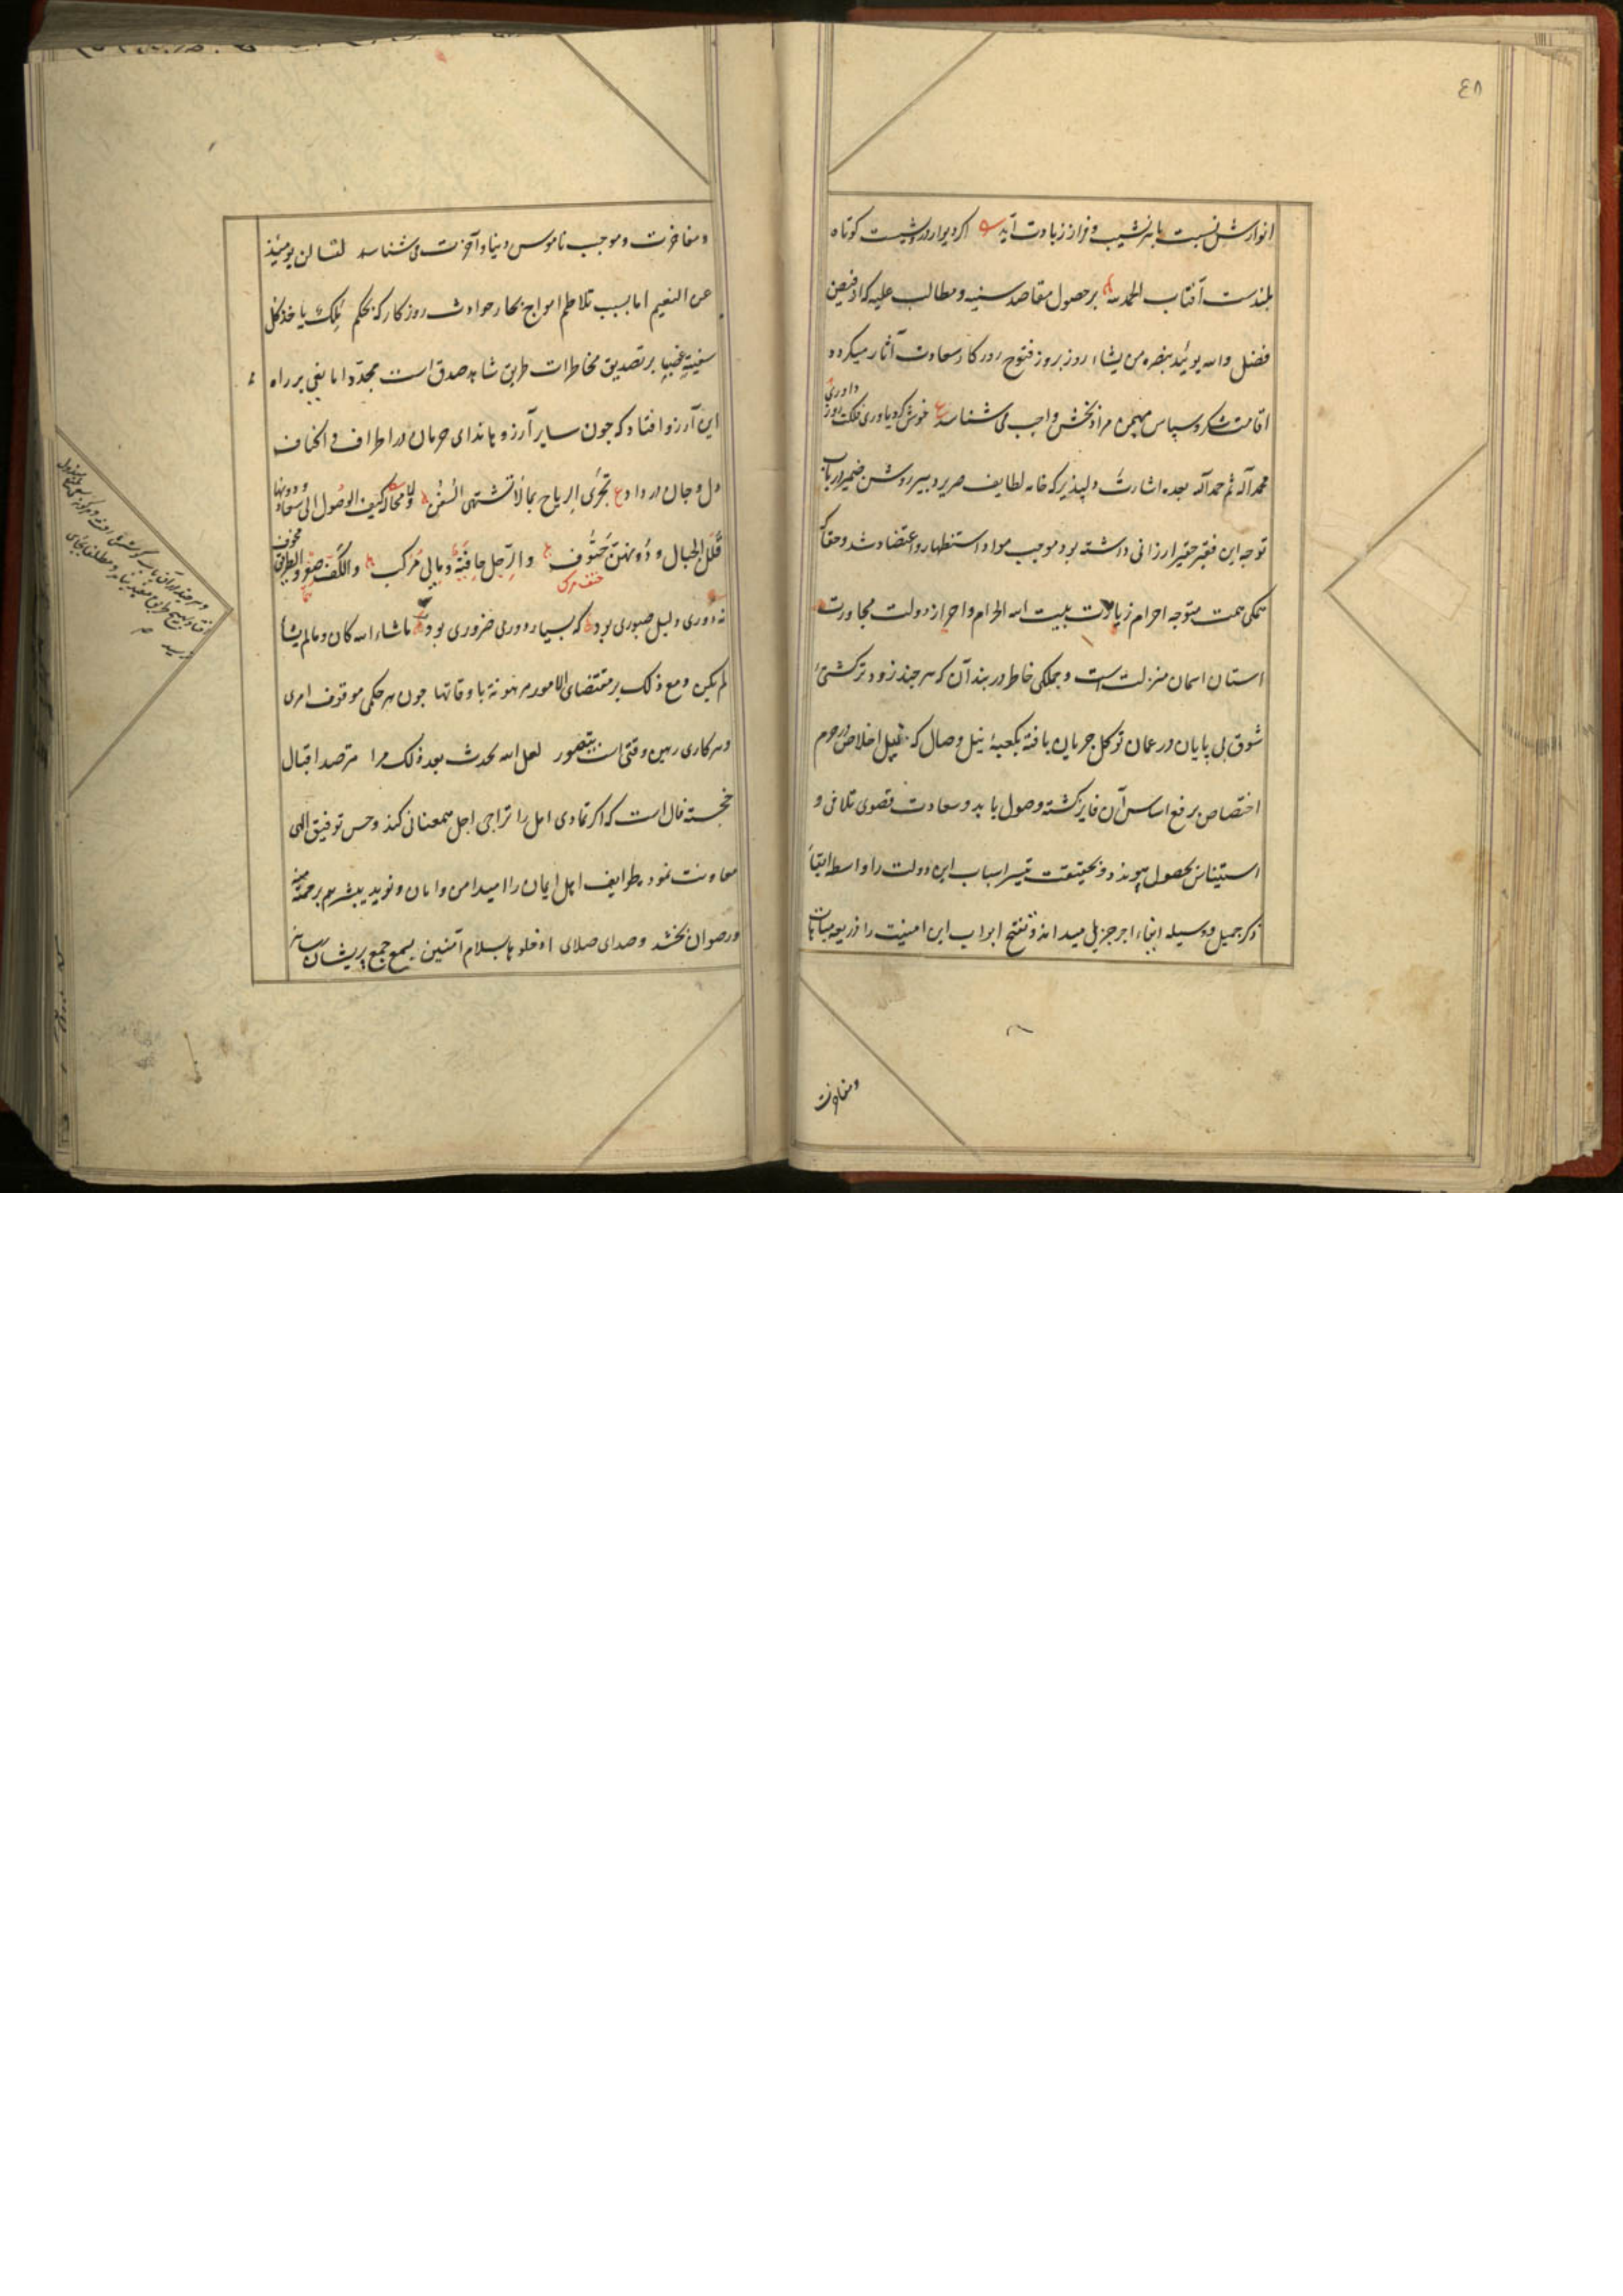 ٤٨
انوارش نسبت با هر نشیب و فراز زیادت آید اکر دیوار درویشیت کوتاه
بلندست آفتاب الحمد لله بر حصول مقاصد سنیه و مطالب علیه که از فیض
فضل والله یوئید بنصره من یشاء روز بروز فتوح روزکار سعادت آثار میکردد
اقامت شکر و سپاس مهیمن مراد بخش واجب می شناسد خوش کرد یاوری فلکت روز داوری
حمدا له ثم حمدا له بعده اشارت دلپذیر که خامه لطایف صریر دبیر روشن ضمیر در باب
توجه این فقیر حقیر ارزانی داشته بود موجب مواد استظهار و اعتضاد شد و حقا که
همکی همت متوجه احرام زیارت بیت الله الحرام و احراز دولت مجاورت
استان اسمان منزلت است و جملکی خاطر در بند آن که هر چند زودتر کشتئ
شوق بی پایان در عمان توکل جریان یافته بکعبهٔ نیل وصال که خلیل اخلاص در حرم
اختصاص برفع اساس آن فایز کشته وصول یابد و سعادت قصوی تلاقی و
استیناس بحصول پیوندد و بحقیقت تیسر اسباب این دولت را واسطه ابقاء
ذکر جمیل و وسیله ابقاء اجر جزیل میداند و تفتح ابواب این امنیت را ذریعه مباهات
ومفاخرت
ومفاخرت و موجب ناموس دنیا و آخرت می شناسد لتسالن یومیذ
عن النعیم اما بسبب تلاطم امواج بحار حوادث روزکار که بحکم ملک یاخذ کل
سفینة غصبا بر تصدیق مخاطرات طریق شاهد صدق است مجدّدا مانعی بر راه
این آرزو افتاد که چون سایر آرزوها ندای حرمان در اطراف و اکناف
دل و جان در داد ع تجری الریاح بما لا تشتهی السفن کیف الوصول الی سعاد و دونها
قلل الجبال و دونهن حتوف والرجل حافیة و مالی مرکب والکف صفر والطریق مخوف
نه دوری دلیل صبوری بود که بسیار دوری ضروری بود ماشاء الله کان و مالم یشا
لم یکن و مع ذلک بر مقتضای الامور مرهونة باوقاتها چون هر حکمی موقوف امری
و هر کاری رهین وقتی است بتصور لعل الله یحدث بعد ذلک امرا مترصد اقبال
خجسته فال است که اکر تمادی امل را تراجی اجل همعنانی کند و حسن توفیق الهی
معاونت نمود طرایف اهل ایمان را امید امن و امان و نوید یبشرهم برحمة منه
و رضوان بخشد و صدای صلای ادخلوها بسلام آمنین بسمع جمع پریشان رساند